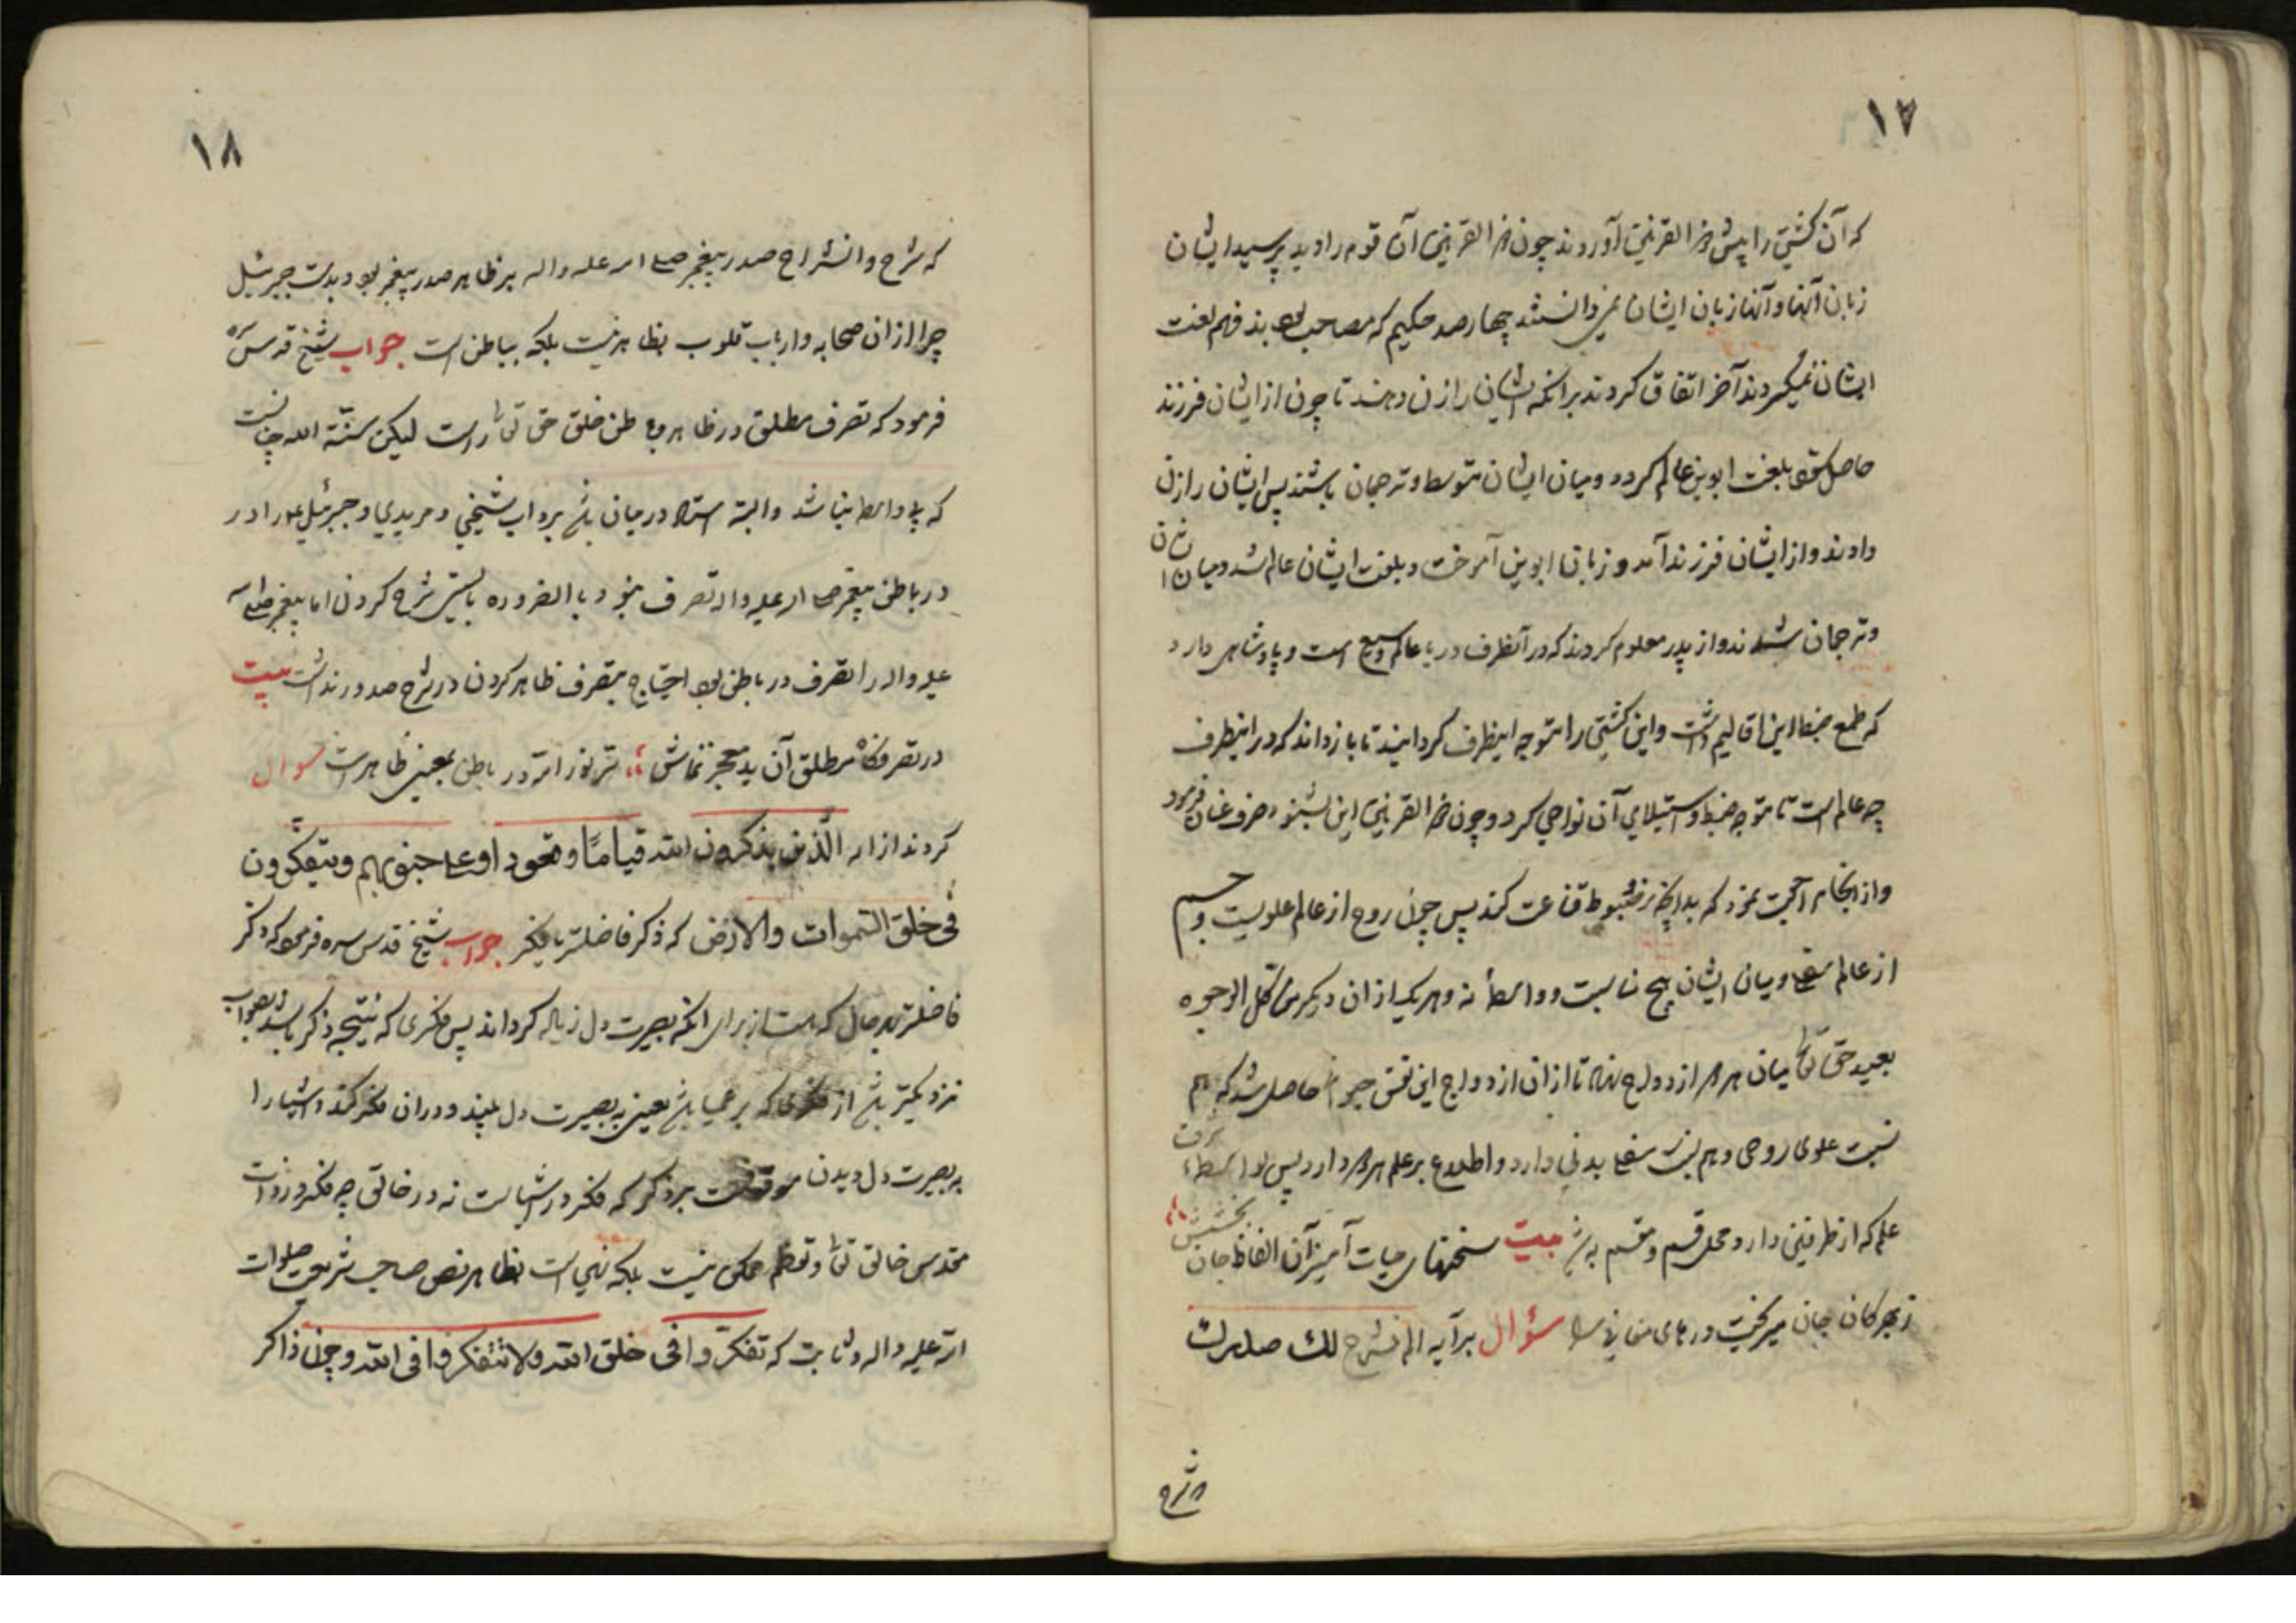 ١٧
که آن کشتی را پیش ذو القرنین آوردند چون ذو القرنین آن قوم را دید پرسید ایشان
زبان آنها و آنها زبان ایشان نمی دانستند چهارصد حکیم که مصاحب بودند فهم لغت
ایشان نمیکردند آخر اتفاق کردند برانکه ایشان را زن دهند تا چون از ایشان فرزند
حاصل شود بلغت ابوین عالم کردد و میان ایشان متوسط و ترجمان باشند پس ایشان را زن
دادند و از ایشان فرزند آمد و زبان ابوین آموخت و بلغت ایشان عالم شد و میان ایشان
و ترجمان شدند و از پدر معلوم کردند که در آنطرف دریا عالم وسیع است و پادشاهی دارد
که طمع ضبط این اقالیم داشت و این کشتی را متوجه اینطرف کردانیند تا باز داند که در اینطرف
چه عالم است تا متوجه ضبط و استیلای آن نواحی کردد چون ذو القرنین این بشنود صرف عنان فرمود
و از آنجا مراجعت نمود که بدانچه مضبوط قناعت کند پس چون روح از عالم علویست و جسم
از عالم سفلی و میان ایشان هیچ مناسبت و واسطهٔ نه و هر یک از ان دیکر من کل الوجوه
بعید حق تعالی میان هر دو ازدواج نهاد تا از ان ازدواج این نفس حیوانی حاصل شد که هم
نسبت علوی روحی و هم نسبت سفلی بدنی دارد و اطلاع بر علم هر دو دارد پس او را بواسطهٔ شرف
علم که از طرفین دارد محل قسم و مقسم به شد بیت سخنهای حیات آمیز آن الفاظ جان بخشش
ز بحر کان جان میریخت درهای معانی را سؤال بر آیه الم نشرح لک صدرک
که شرح
١٨
که شرح و انشراح صدر پیغمبر صلی الله علیه و اله بر ظاهر صدر پیغمبر بود بدست جبرئیل
چرا از ان صحابه و ارباب قلوب بظاهر نیست بلکه بباطن است جواب شیخ قدس سره
فرمود که تصرف مطلق در ظاهر و باطن خلق حق تعالی راست لیکن سنّة الله چنانست
که بی واسطه نباشد و البته استاد در میان باشد بر داب شیخی و مریدی و جبرئیل علیه را در
در باطن پیغمبر صلی الله علیه و اله تصرف نبود بالضروره بایستی شرح کردن اما پیغمبر صلی الله
علیه و اله را تصرف در باطن بود احتیاج بتصرف ظاهر کردن در شرح صدور نداشت بیت
در تصرفگاه مطلق آن ید معجز نماش سرّ نور الله در باطن بمعنی ظاهر است سوال
کردند از ایه الّذین یذکرون الله قیامًا و قعودا و علی جنوبهم و یتفکّرون
فی خلق السّموات والارض که ذکر فاضلتر یا فکر جواب شیخ قدس سره فرمود که ذکر
فاضلتر بهر حال که هست از برای انکه بصیرت دل زیاده کرداند پس فکری که نتیجه ذکر باشد بصواب
نزدیکتر باشد از فکری که بر عمیا باشد یعنی به بصیرت دل ببیند و در ان فکر کند و اشیا را
به بصیرت دل دیدن موقوفست بر ذکر که فکر در اشیاست نه در خالق چه فکر در ذات
مقدس خالق تعالی و تعظم ممکن نیست بلکه نهی است بظاهر نص صاحب شریعت صلوات
الله علیه و اله وثابت که تفکّروا فی خلق الله ولا تتفکروا فی الله و چون ذاکر